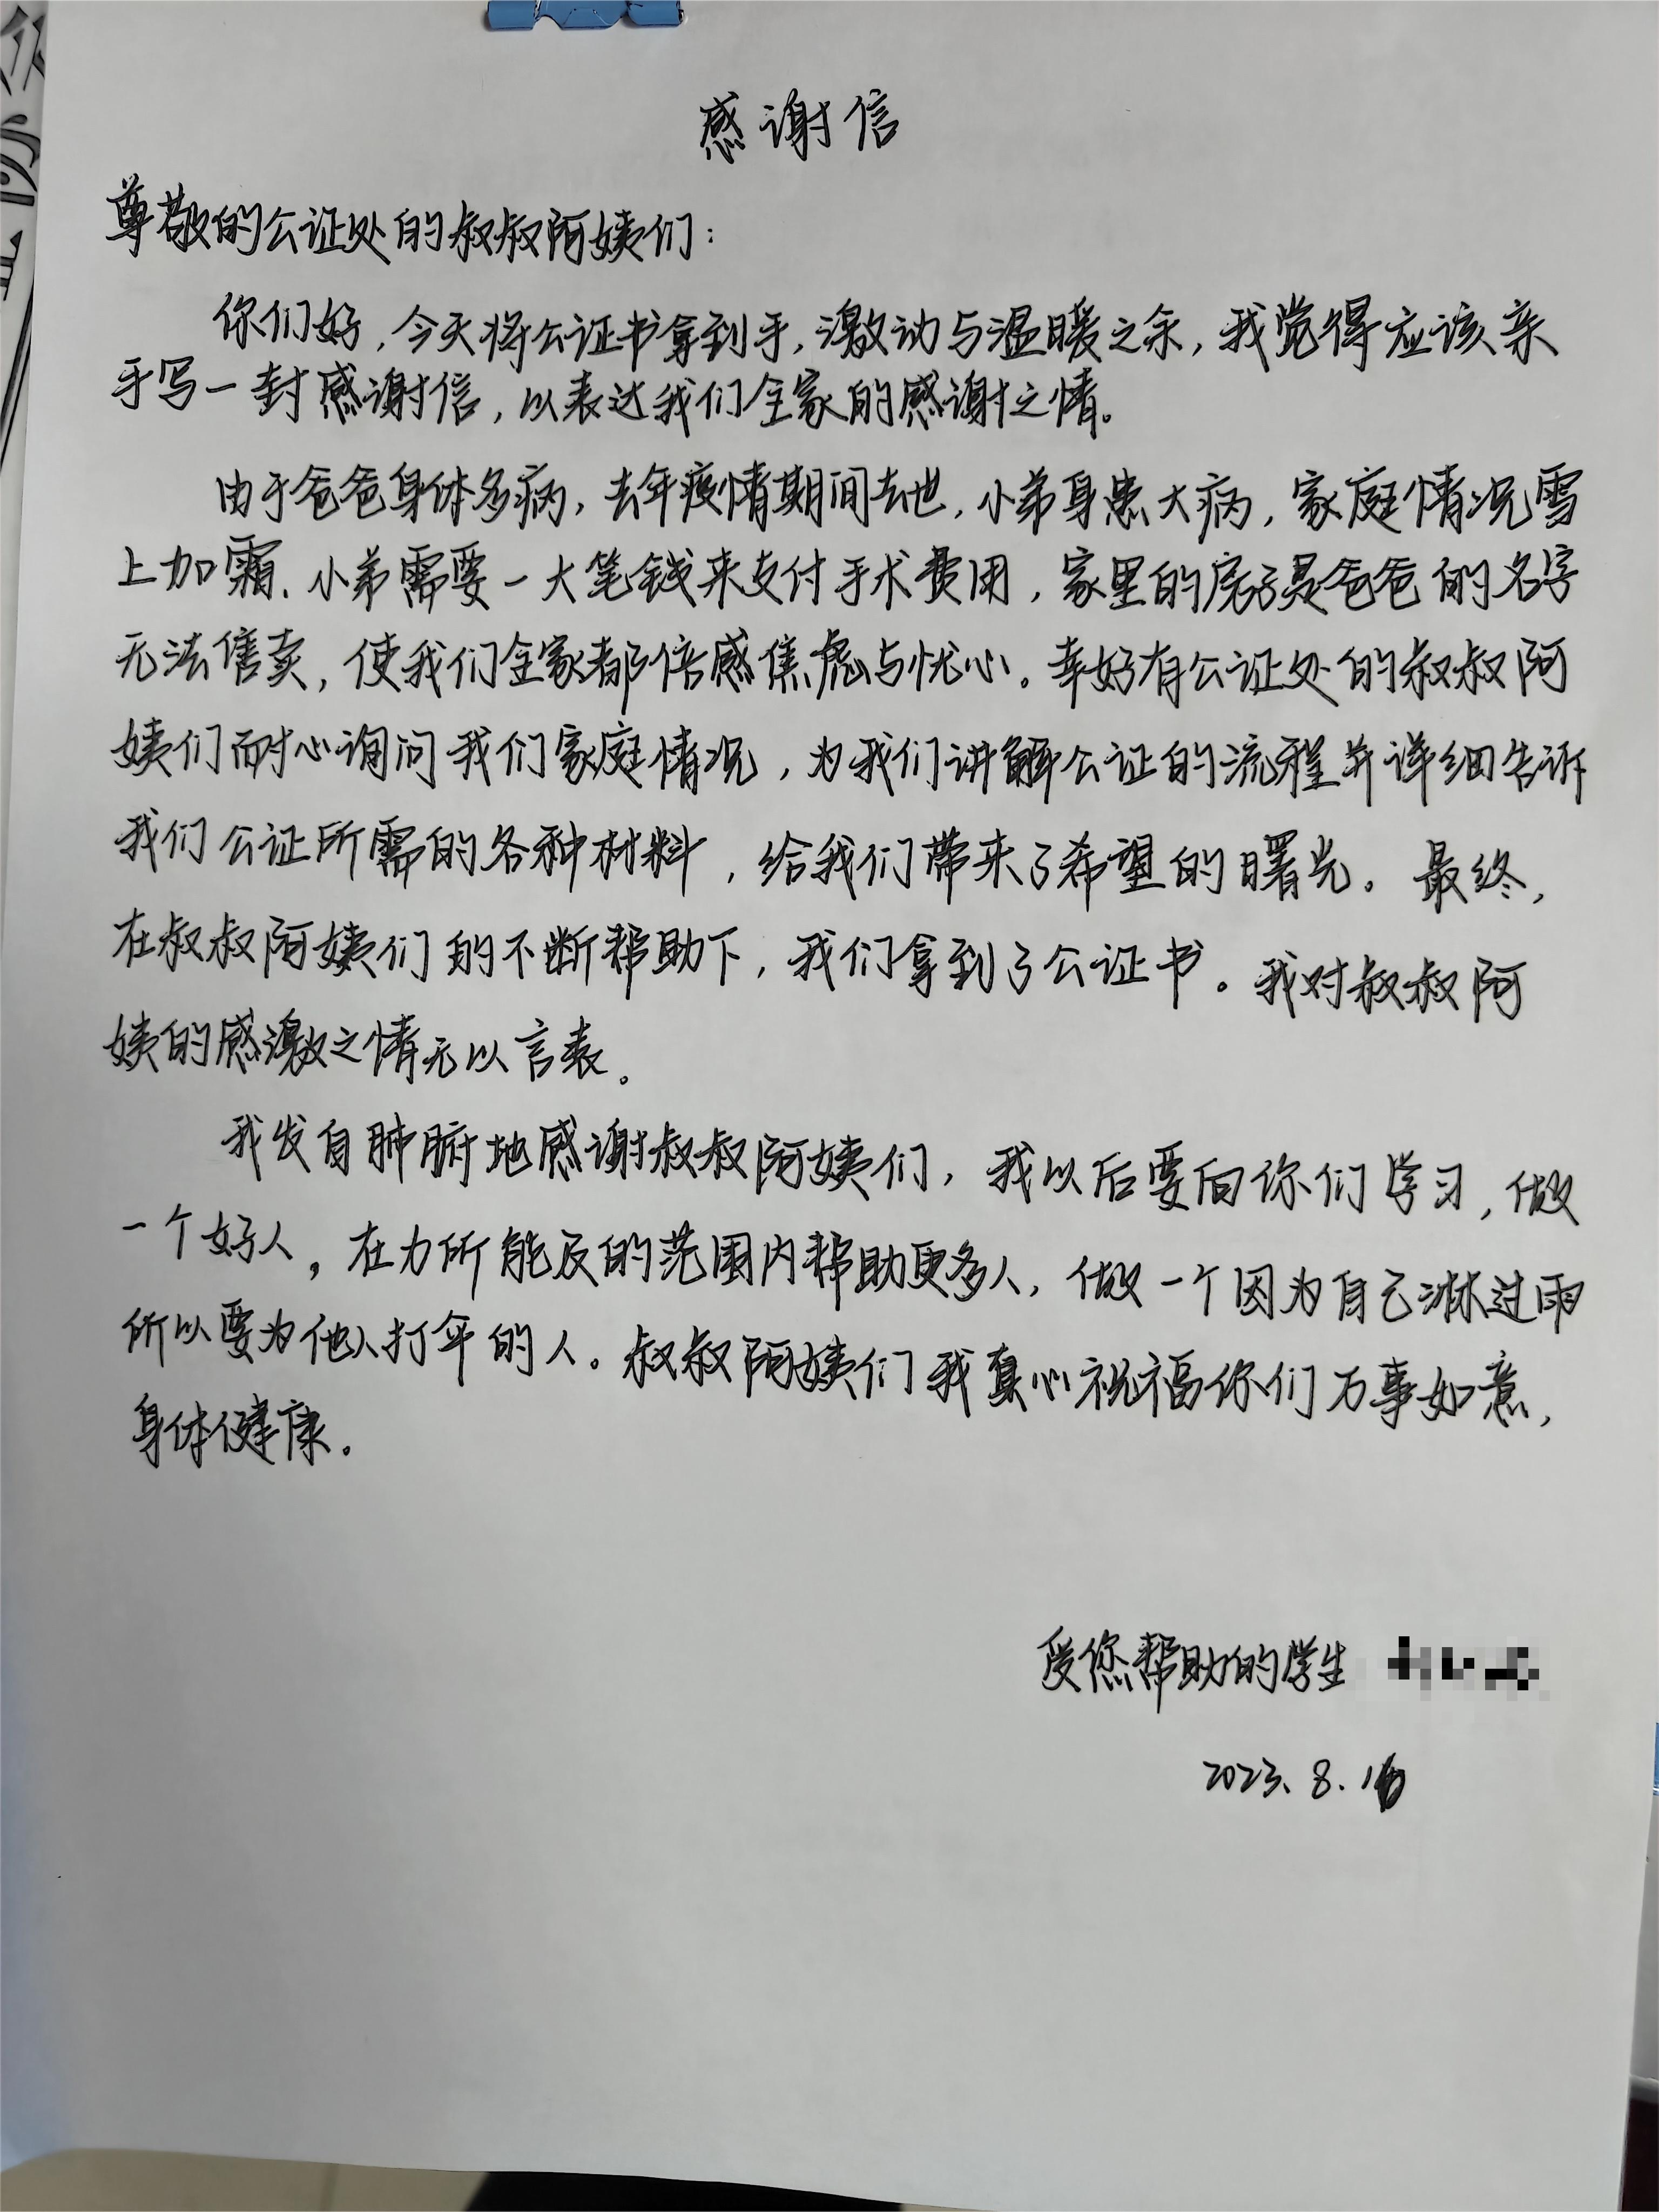 感谢信
尊敬的公证处的叔叔阿姨们：
你们好，今天将公证书拿到手，激动与温暖之余，我觉得应该亲
手写一封感谢信，以表达我们全家的感谢之情。
由于爸爸身体多病，去年疫情期间去世，小弟身患大病，家庭情况雪
上加霜．小弟需要一大笔钱来支付手术费用，家里的房子是爸爸的名字
无法售卖，使我们全家都倍感焦虑与忧心。幸好有公证处的叔叔阿
姨们耐心询问我们家庭情况，为我们讲解公证的流程并详细告诉
我们公证所需的各种材料，给我们带来了希望的曙光。最终，
在叔叔阿姨们的不断帮助下，我们拿到了公证书。我对叔叔阿
姨的感激之情无以言表。
我发自肺腑地感谢叔叔阿姨们，我以后要向你们学习，做
一个好人，在力所能及的范围内帮助更多人，做一个因为自己淋过雨
所以要为他人打伞的人。叔叔阿姨们我真心祝福你们万事如意，
身体健康。
受您帮助的学生
2023.8.16